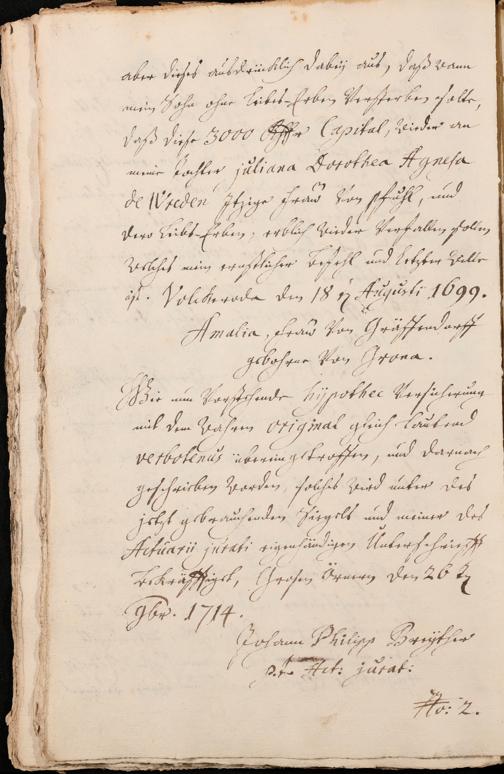 aber dieses ausdrücklich dabey aus, daß wann
mein Sohn ohne Leibes-Erben Versterben solte,
daß diese 3000 Capital, wieder an
meine Tochter juliana Dorothea Agnesa
de Wreden itzige Frau Von Pfuhl, und
dero Leibs-Erben, erblich wieder Verfallen sollen
welches mein ernstlicher Befehl und letzter Wille
ist. Volckeroda den 18 Augusti 1699.
Amalia, Frau Von Gräffendorff
gebohrne Von Grona.
Wie nun Vorstehende hypothec Versicherung
mit dem Wahren original gleich lautend
verbotenus übereingetroffen, und darnach
geschrieben worden, solches wird unter des
jetzt gebrauchenden Siegels und meiner des
Actuarii jurati eigenhändigen Unterschrifft
bekräfftiget, Großen Örnern den 26
9br. 1714.
Johann Philipp Breyther
Act: jurat:
No: 2.